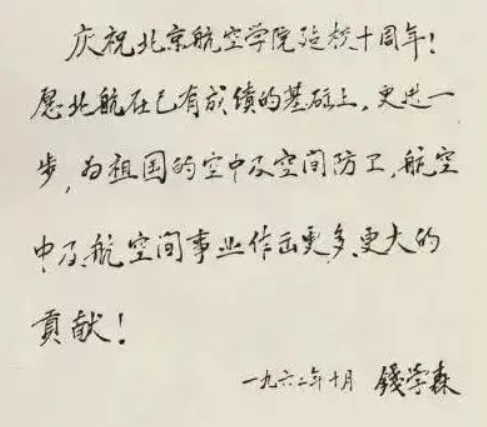 庆祝北京航空学院建校十周年！
愿北航在已有成绩的基础上，更进一
步，为祖国的空中及空间防卫，航空
中及航空间事业作出更多、更大的
贡献！
一九六二年十月 錢学森